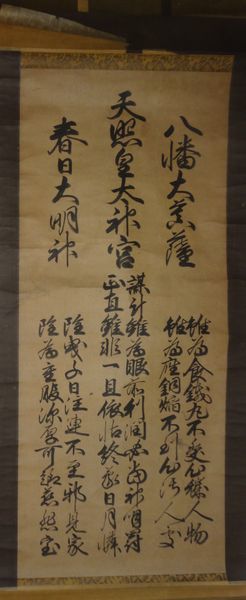 八幡大菩薩
雖為食鐵丸不受心穢人物
雖為座銅焔不到心人處
天照皇太神宮
謀計雖為眼前利潤必當神明罸
正直雖非一旦依怙終蒙日月憐
春日大明神
雖曳千日注連不至邪見家
雖為重服深厚可趣慈悲室